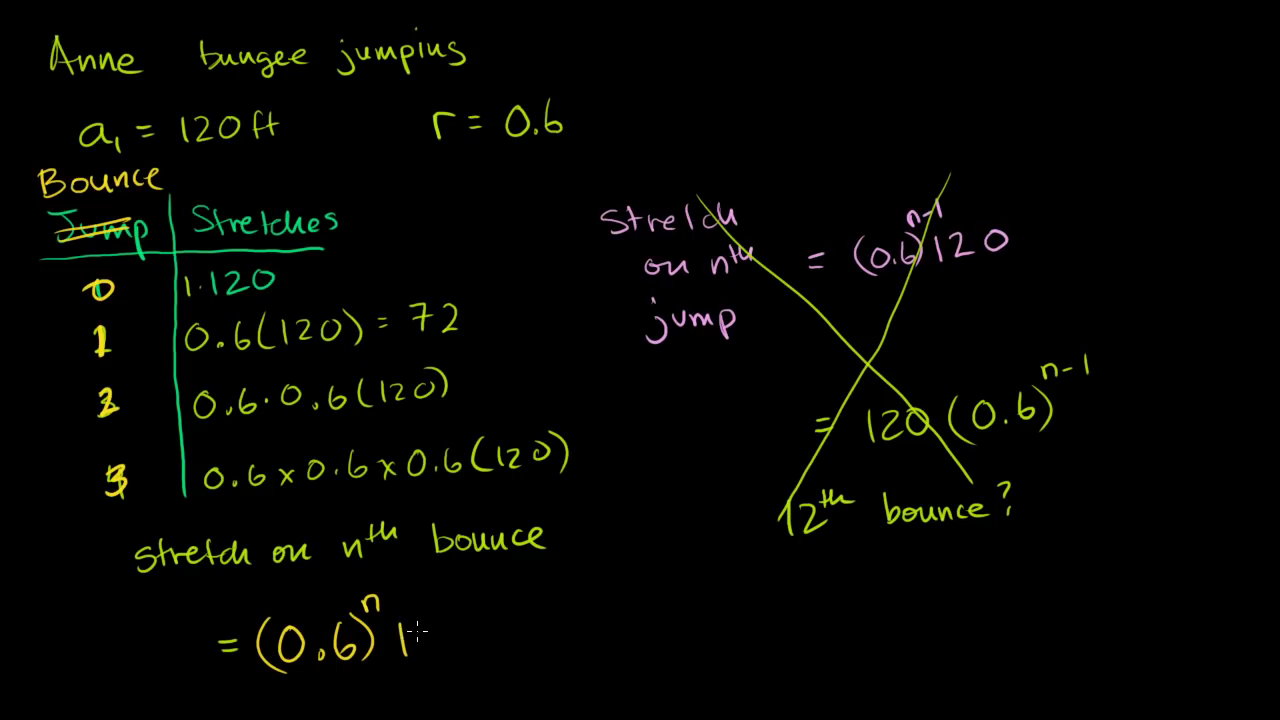 Anne bungee jumping
a₁ = 120 ft r = 0.6
Bounce
Jump | Stretches
0 | 1·120
1 | 0.6(120) = 72
2 | 0.6·0.6(120)
3 | 0.6 x 0.6 x 0.6(120)
Stretch on nᵗʰ bounce
= (0.6)ⁿ 1
Stretch
on nᵗʰ
jump
= (0.6)ⁿ⁻¹120
= 120(0.6)ⁿ⁻¹
12ᵗʰ bounce?